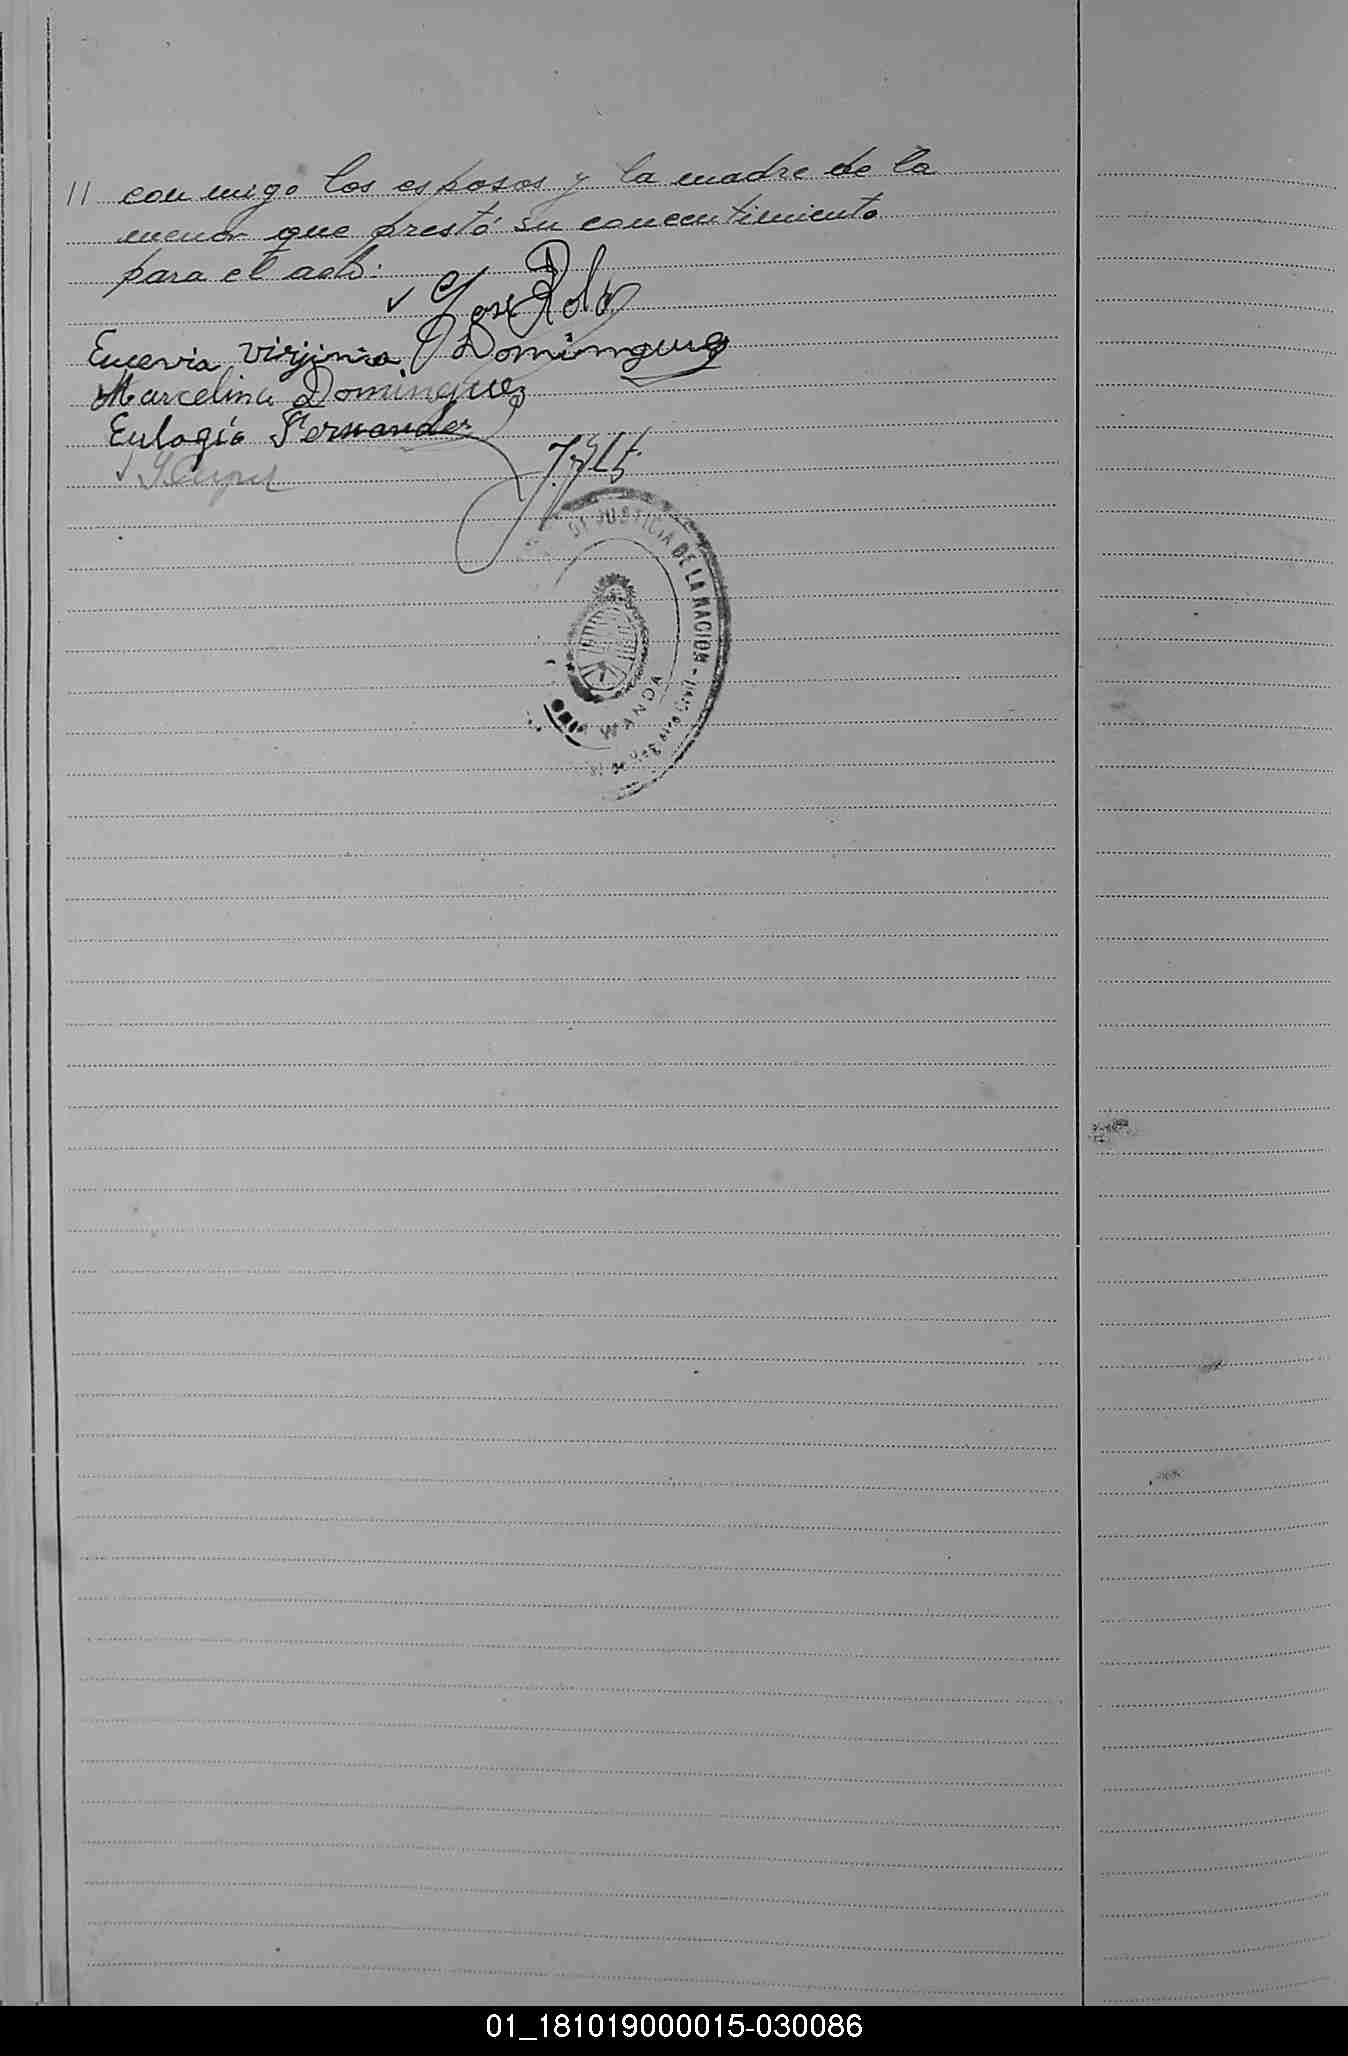 11 con migo los esposos y la madre de la
menor que prestó su concentimiento
para el acto.
Jose
Virjinia Dominguez
Marcelina Dominguez
Eulogio Fernandez
DE JUSTICIA DE LA NACION
WANDA
01_181019000015-030086